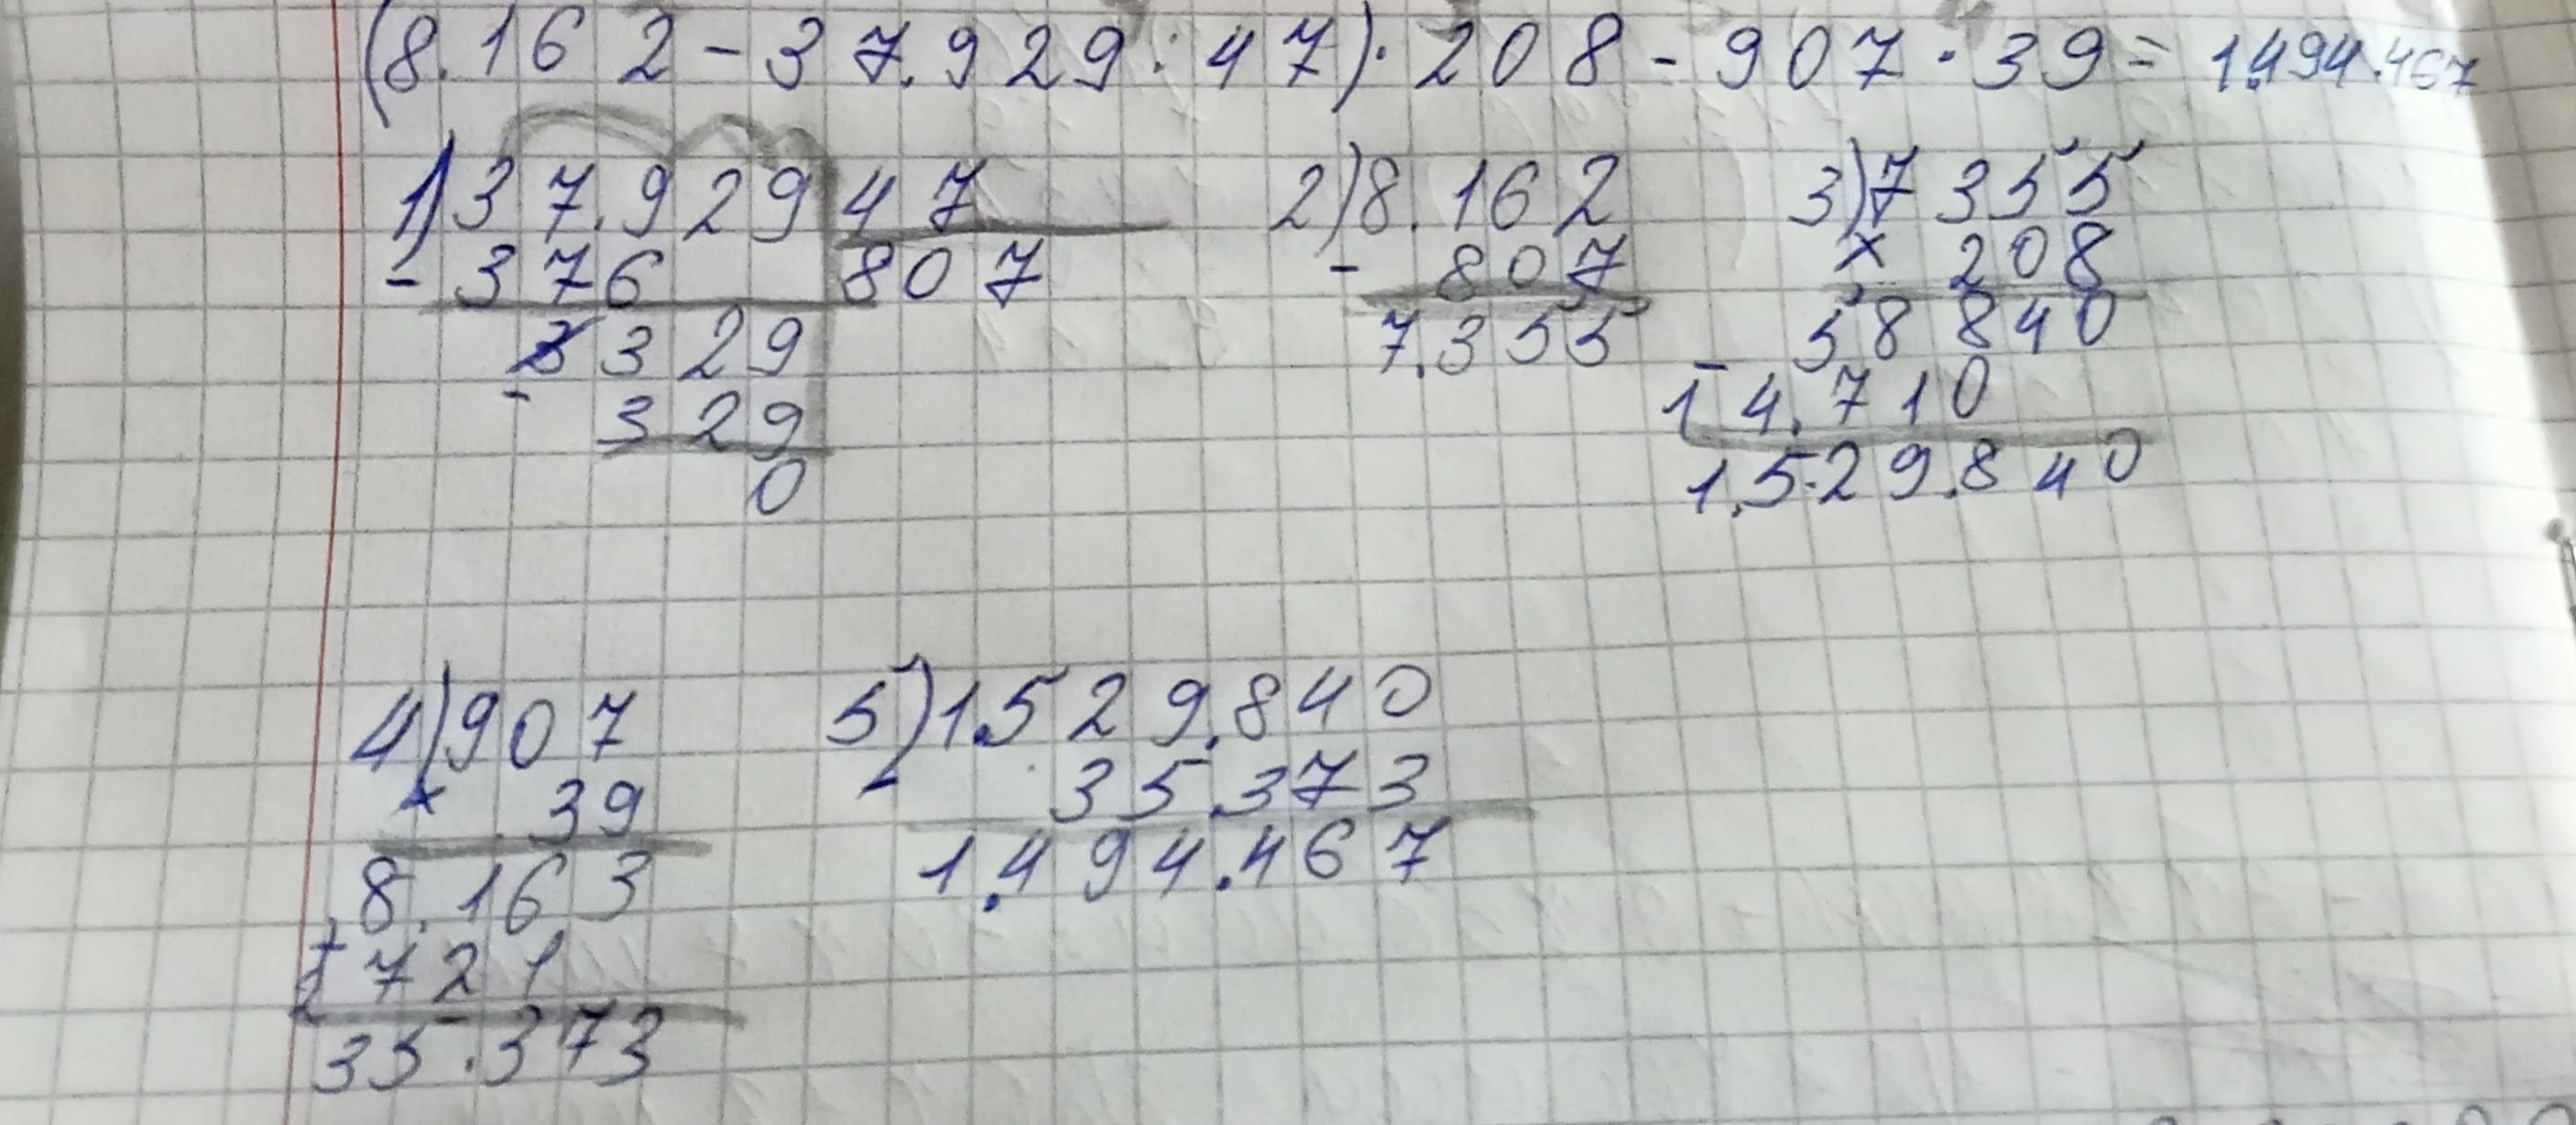 (8.162-37.929:47)·208-907·39=1.494.467
1) 37.929 47
-376 807
329
- 329
0
2) 8.162
- 807
7.355
3) 7355
x 208
58840
- 14.710
1.529.840
4) 907
x 39
8.163
+ 2721
35.373
5) 1.529.840
- 35.373
1.494.467